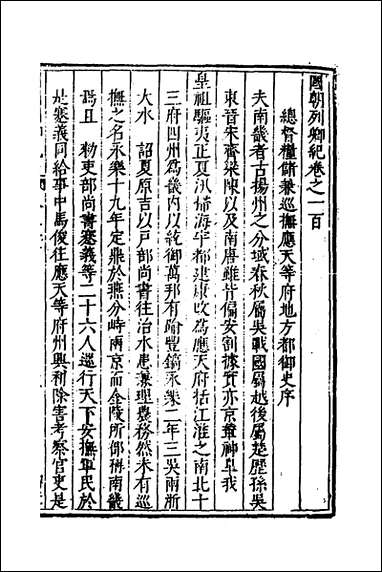 國朝列卿紀卷之一百
總督糧儲兼巡撫應天等府地方都御史序
夫南畿者古揚州之分域春秋屬吳戰國屬越後屬楚歷孫吳
東晉宋齊梁陳以及南唐雖皆偏安劉據實亦京輦神皐我
皇祖驅夷正夏汛掃海宇都建康改為應天府括江淮之南北十
三府四州為畿內以統御萬邦有踰豐鎬永樂二年三吳兩浙
大水 詔夏原吉以戶部尚書往治水患兼理農務然未有巡
撫之名永樂十九年定鼎於燕分峙兩京而金陵所鄰稱南畿
焉且 勑吏部尚書蹇義等二十六人巡行天下安撫軍民於
是蹇義同給事中馬俊往應天等府州興利除害考察官吏是